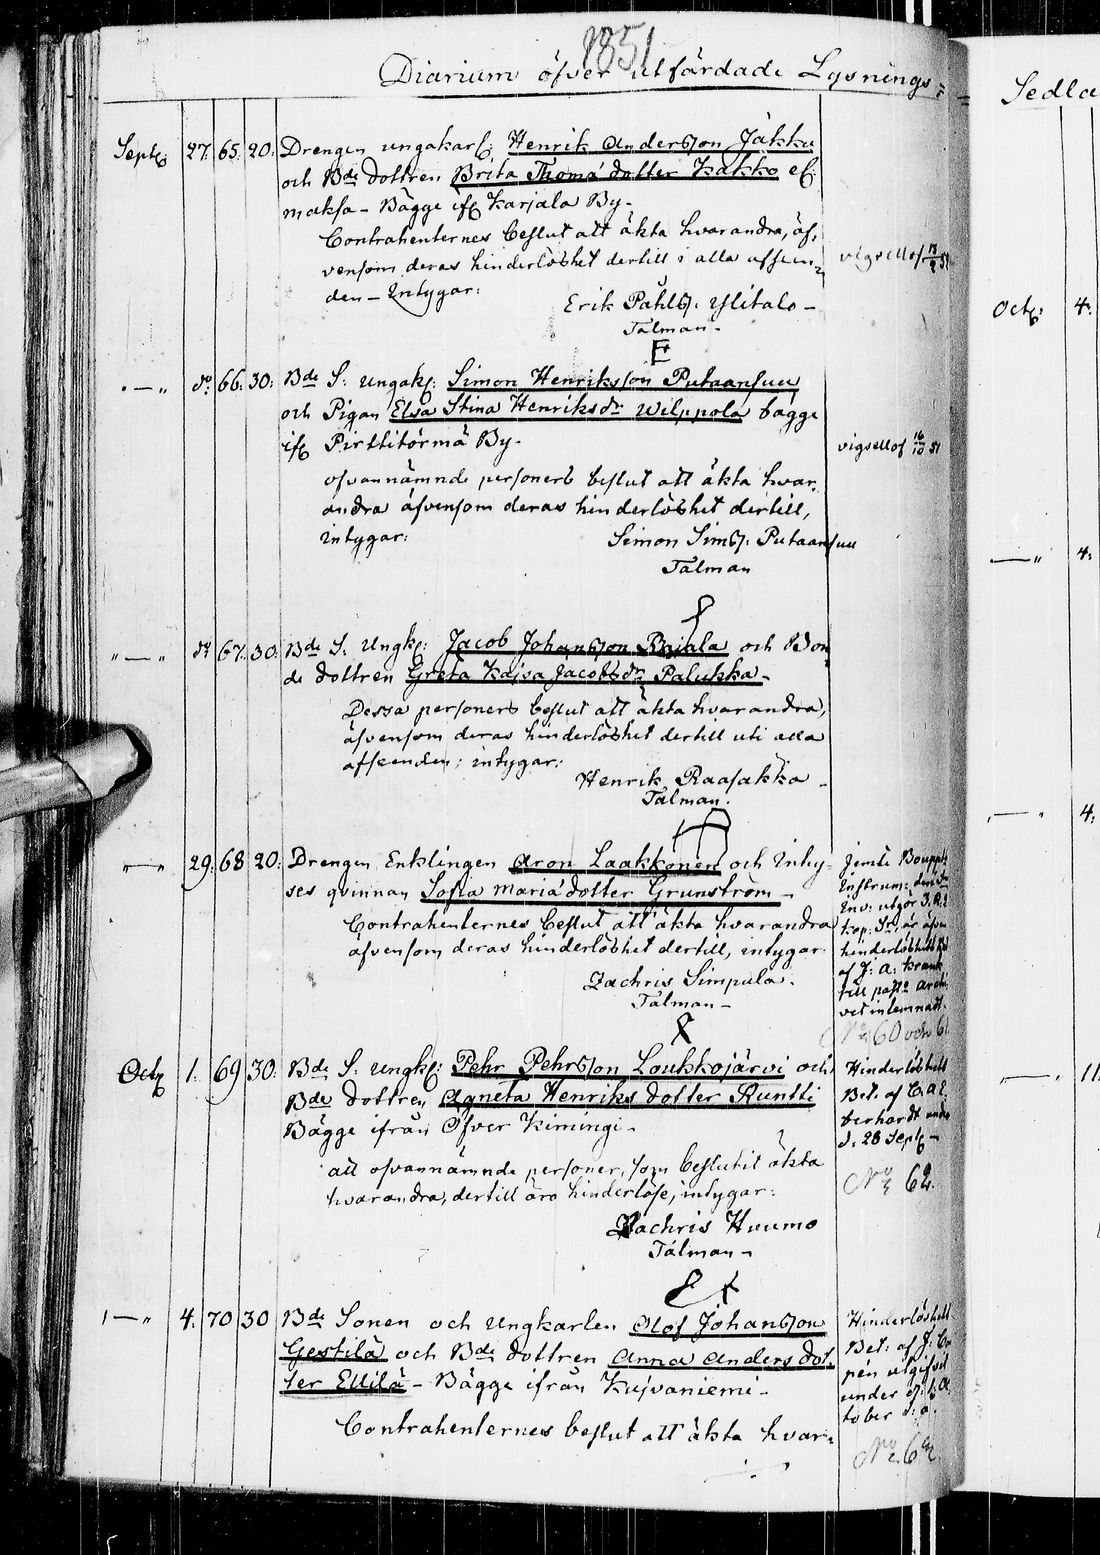 1851
Diarium öfver utfärdade Lysnings=
Sedla
Septr. 27. 65. 20. Drengen ungakarl: Henrik Andersson Jäkku
och Bde dottren Brita Thoma dotter Kakko
maksa - Bägge ifr Karjala By.
Contrahenternes beslut att äkta hvarandra, äf,
vensom deras hinderlöshet dertill i alla afseen=
den - Intygar:
Erik Påhls. Ylitalo -
Talman -
vigsellof 51
"—" do 66. 30. Bde S. Ungak: Simon Henriksson Putaansuu
och Pigan Elsa Stina Henriksdr Wilppola bägge
ifr Pirttitörmä By.
ofvannämnde personers beslut att äkta hvar
andra äfvensom deras hinderlöshet dertill,
intygar:
Simon Sims. Putaansuu
Talman
vigsellof 16/10 51
"—" do 67. 30. Bde S. Ungk: Jacob Johansson och Bon
de dottren Greta Kajsa Jacobsdr Palukka -
Dessa personers beslut att äkta hvarandra,
äfvensom deras hinderlöshet dertill uti alla
afseenden; intygar:
Henrik Raasakka -
Talman.
"—" 29. 68 20. Drengen Enklingen Aron Laakkonen och Inhy=
ses qvinnan Sofia Maria dotter Grunström -
Contrahenternes beslut att äkta hvarandra
äfvensom deras hinderlöshet dertill, intygar
Zachris Simpula.
Talman -
jemte Boupptn
Instrum:
Inv: utgör 3. R.
kop: Sr, är äfven
hinderlöshets
af J: A: Krank
till past: Archi
vet inlemnatt.
No 60 och 61
Oct 1. 69 30. Bde S. Ungk: Pehr Pehrsson Loukkojärvi och
Bde dottren Agneta Henriks dotter Runtti
Bägge ifrån Öfver Kimingi -
att ofvannämnde personer, som beslutit äkta
hvarandra, dertill äro hinderlöse, intygar:
Zachris Huumo
Talman -
Hinderlöshets
Bet. af C. A. E.
berhardt under
d. 28 Sept -
No 62.
"—" 4. 70 30 Bde Sonen och Ungkarlen Olof Johansson
Gestilä och Bde dottren Anna Anders dot,
ter Ellilä - Bägge ifrån Kuivaniemi -
Contrahenternes beslut att äkta hvar=
Hinderlöshets
Bet: af J: Ca
pén utgifvet
under d: O
tober d: a.
No
Oct: 4.
—" 4.
—" 4.
—" 11